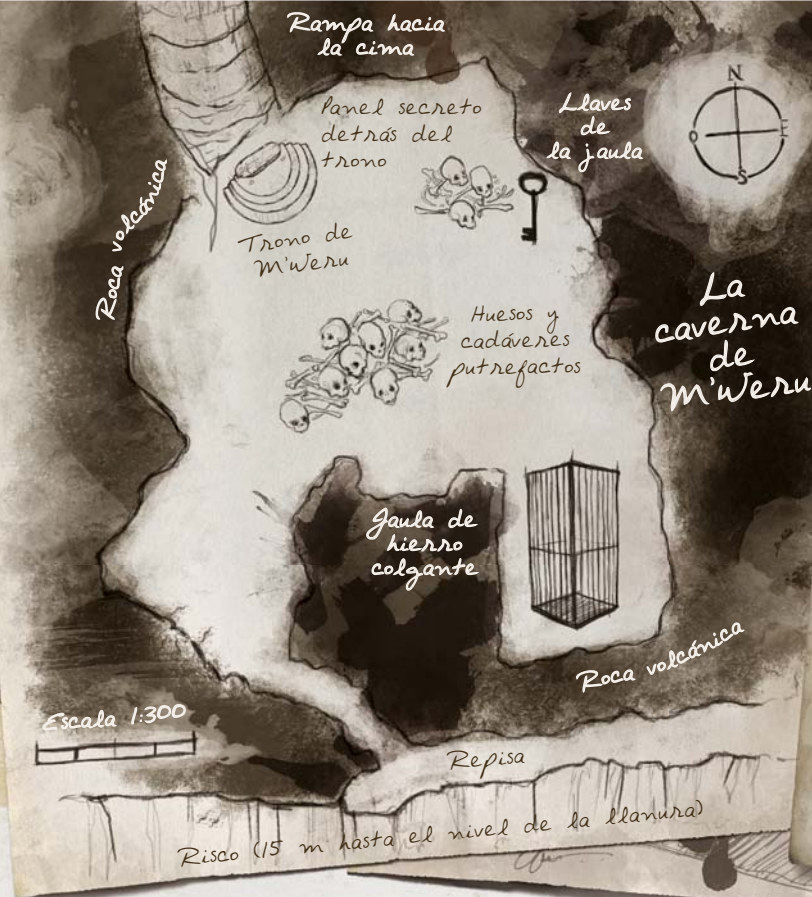 Rampa hacia
la cima
Panel secreto
detrás del
trono
Llaves
de
la jaula
N
O
E
S
Roca volcánica
Trono de
M'Weru
La
caverna
de
M'Weru
Huesos y
cadáveres
putrefactos
Jaula de
hierro
colgante
Roca volcánica
Escala 1:300
Repisa
Risco (15 m hasta el nivel de la llanura)